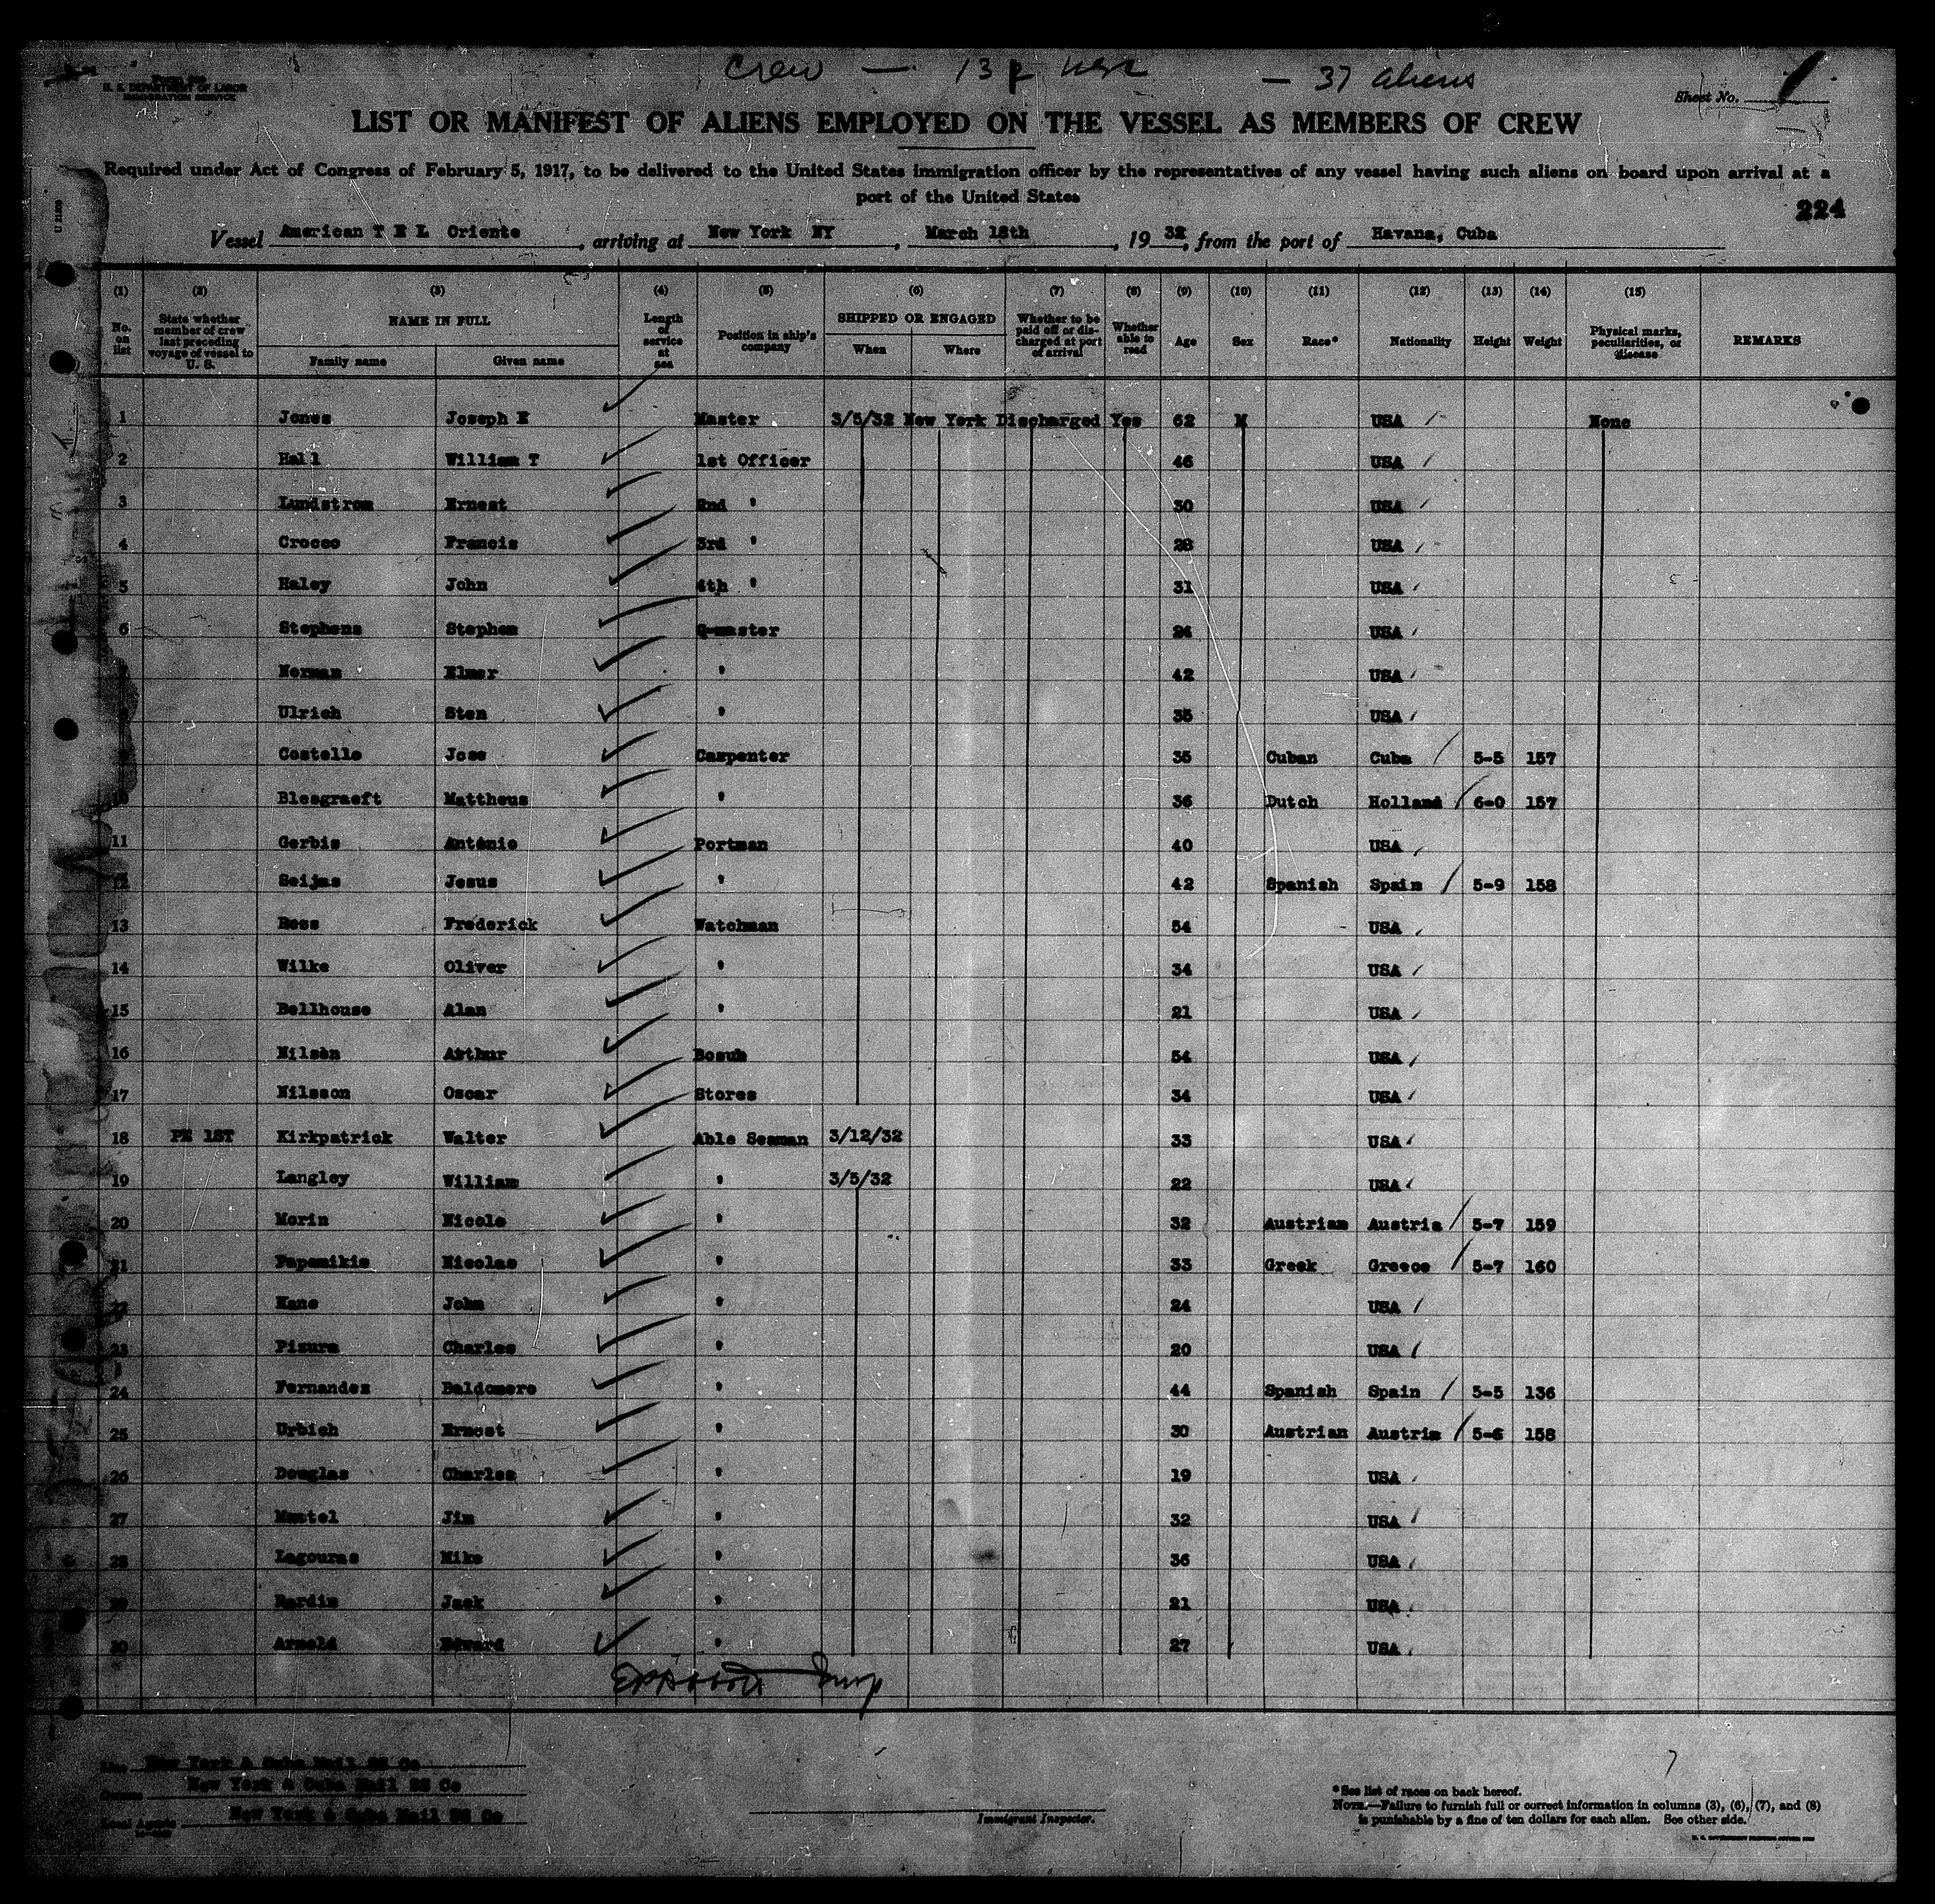 Crew — 13 p - 37 aliens
U. S. DEPARTMENT OF LABOR
IMMIGRATION SERVICE
Sheet No. 1
LIST OR MANIFEST OF ALIENS EMPLOYED ON THE VESSEL AS MEMBERS OF CREW
Required under Act of Congress of February 5, 1917, to be delivered to the United States immigration officer by the representatives of any vessel having such aliens on board upon arrival at a
port of the United States
224
Vessel American T E L Oriente, arriving at New York NY, March 18th, 19 32, from the port of Havana, Cuba
(1) (2) (3) (4) (5) (6) (7) (8) (9) (10) (11) (12) (13) (14) (15)
No. on list State whether member of crew last preceding voyage of vessel to U. S. NAME IN FULL Family name Given name Length of service at sea Position in ship's company SHIPPED OR ENGAGED When Where Whether to be paid off or discharged at port of arrival Whether able to read Age Sex Race* Nationality Height Weight Physical marks, peculiarities, or disease REMARKS
1 Jones Joseph E Master 3/5/32 New York Discharged Yes 62 M USA None
2 Hall William T 1st Officer 46 USA
3 Lundstrom Ernest 2nd " 30 USA
4 Crocco Francis 3rd " 28 USA
5 Haley John 4th " 31 USA
6 Stephens Stephen Q-master 24 USA
Norman Elmer " 42 USA
Ulrich Sten " 35 USA
Costello Jose Carpenter 35 Cuban Cuba 5-5 157
10 Blesgraeft Mattheus " 36 Dutch Holland 6-0 157
11 Gerbis Antonio Portman 40 USA
12 Seijas Jesus " 42 Spanish Spain 5-9 158
13 Ross Frederick Watchman 54 USA
14 Wilke Oliver " 34 USA
15 Bellhouse Alan " 21 USA
16 Nilsen Arthur Bosun 54 USA
17 Nilsson Oscar Stores 34 USA
18 PE 1ST Kirkpatrick Walter Able Seaman 3/12/32 33 USA
19 Langley William " 3/5/32 22 USA
20 Morin Nicolo " 32 Austrian Austria 5-7 159
21 Papamikis Nicolas " 33 Greek Greece 5-7 160
22 Kane John " 24 USA
23 Pizura Charles " 20 USA
24 Fernandez Baldomero " 44 Spanish Spain 5-5 136
25 Urbich Ernest " 30 Austrian Austria 5-6 158
26 Douglas Charles " 19 USA
27 Mantel Jim " 32 USA
28 Lagouras Mike " 36 USA
29 Hardin Jack " 21 USA
30 Arnold Edward " 27 USA
Line New York & Cuba Mail SS Co
Owners New York & Cuba Mail SS Co
Local Agents New York & Cuba Mail SS Co
Immigrant Inspector.
*See list of races on back hereof.
NOTE.—Failure to furnish full or correct information in columns (3), (6), (7), and (8)
is punishable by a fine of ten dollars for each alien. See other side.